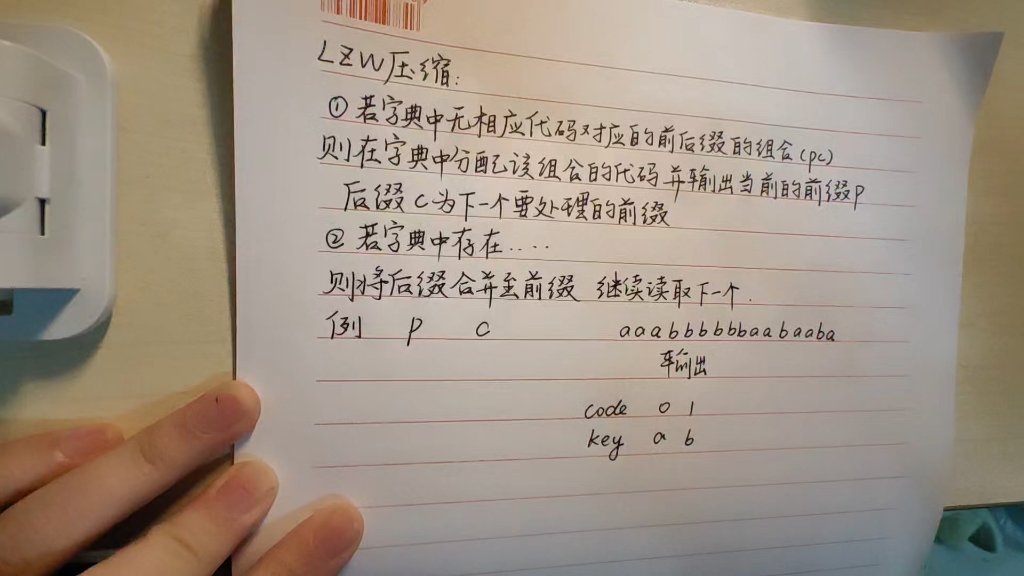 LZW压缩:
① 若字典中无相应代码对应的前后缀的组合(pc)
则在字典中分配该组合的代码并输出当前的前缀p
后缀c为下一个要处理的前缀
② 若字典中存在....
则将后缀合并至前缀 继续读取下一个.
例 p c aaabbbbbbaabaaba
输出
code 0 1
key a b